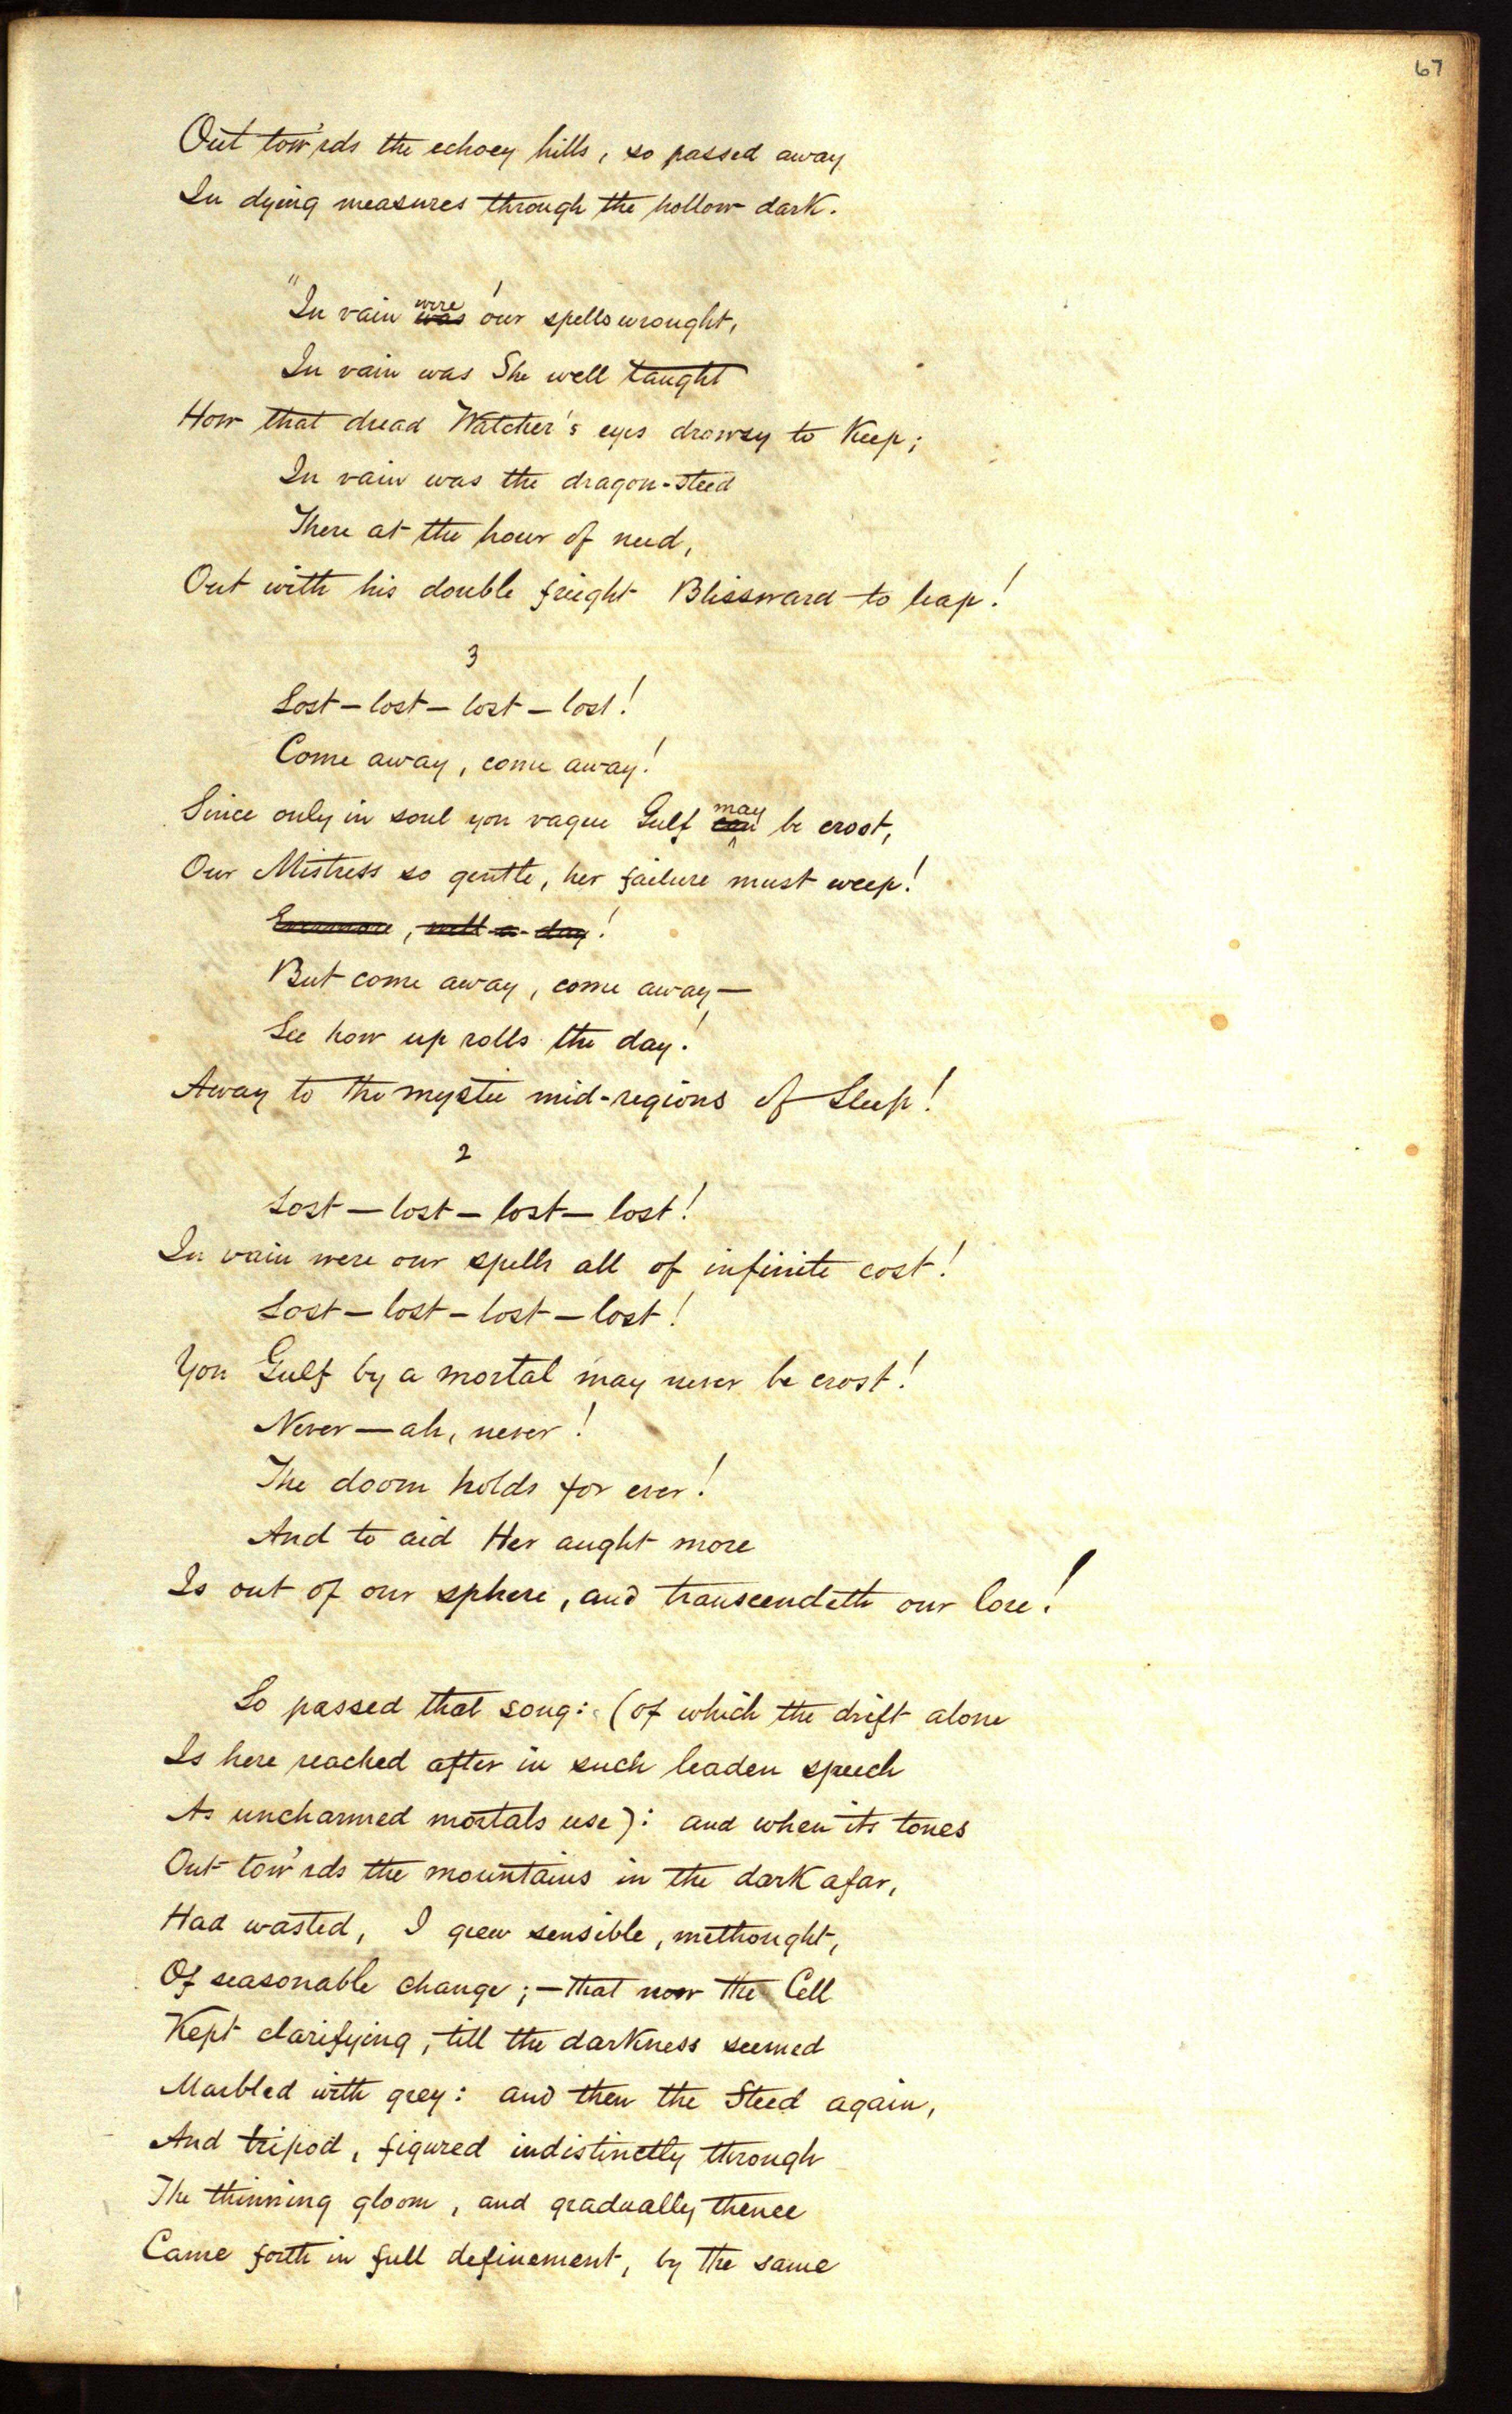 67
Out tow'rds the echoey hills, so passed away
In dying measures through the hollow dark.
"In vain were was our spells wrought,
In vain was She well taught
How that dread Watcher's eyes drowsy to keep;
In vain was the dragon-steed
There at the hour of need,
Out with his double freight Blissward to leap!
3
Lost—lost—lost—lost!
Come away, come away!
Since only in soul yon vague Gulf may can be crost,
Our Mistress so gentle, her failure must weep!
Evermore, well-a-day!
But come away, come away—
See how up rolls the day!
Away to the mystic mid-regions of Sleep!
2
Lost—lost—lost—lost!
In vain were our spells all of infinite cost!
Lost—lost—lost—lost!
Yon Gulf by a mortal may never be crost!
Never—ah, never!
The doom holds for ever!
And to aid Her aught more
Is out of our sphere, and transcendeth our lore!
So passed that song: (of which the drift alone
Is here reached after in such leaden speech
As uncharmed mortals use): and when its tones
Out tow'rds the mountains in the dark afar,
Had wasted, I grew sensible, methought,
Of seasonable change;—that now the Cell
Kept clarifying, till the darkness seemed
Marbled with grey: and then the Steed again,
And tripod, figured indistinctly through
The thinning gloom, and gradually thence
Came forth in full definement, by the same